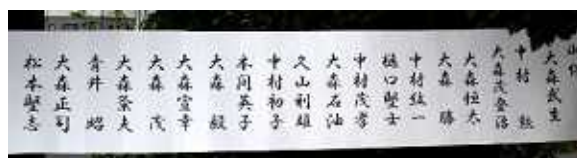 大森武生
中村 勲
大森茂登治
大森恒太
大森 勝
中村紘一
樋口堅士
中村茂孝
大森石油
久山利雄
中村初子
本間英子
大森 毅
大森宣幸
大森 茂
大森榮夫
青井 昭
大森正司
松本堅志